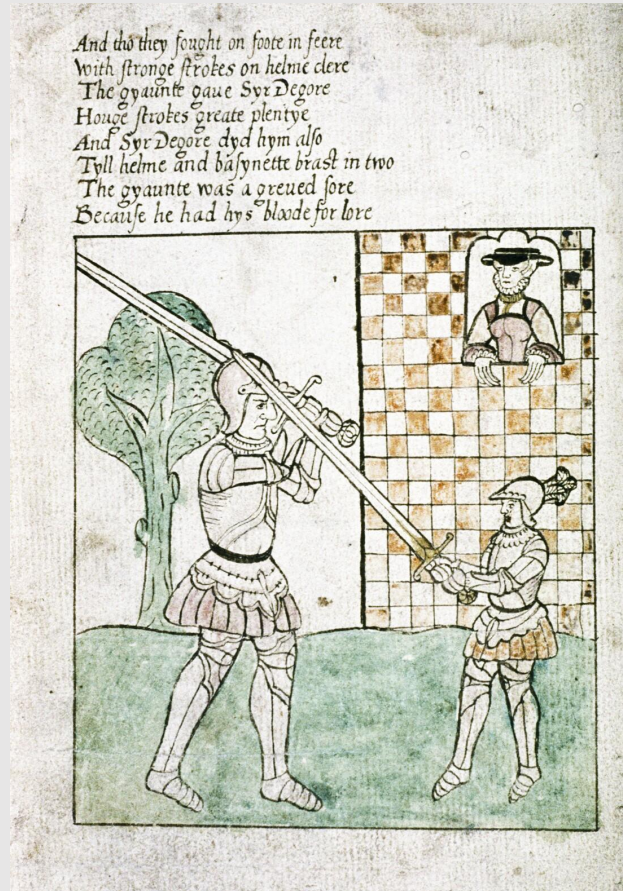 And tho they fought on foote in feere
With stronge strokes on helme clere
The gyaunte gaue Syr Degore
Houge strokes greate plentye
And Syr Degore dyd hym also
Tyll helme and basynette brast in two
The gyaunte was a greued sore
Because he had hys bloode for lore